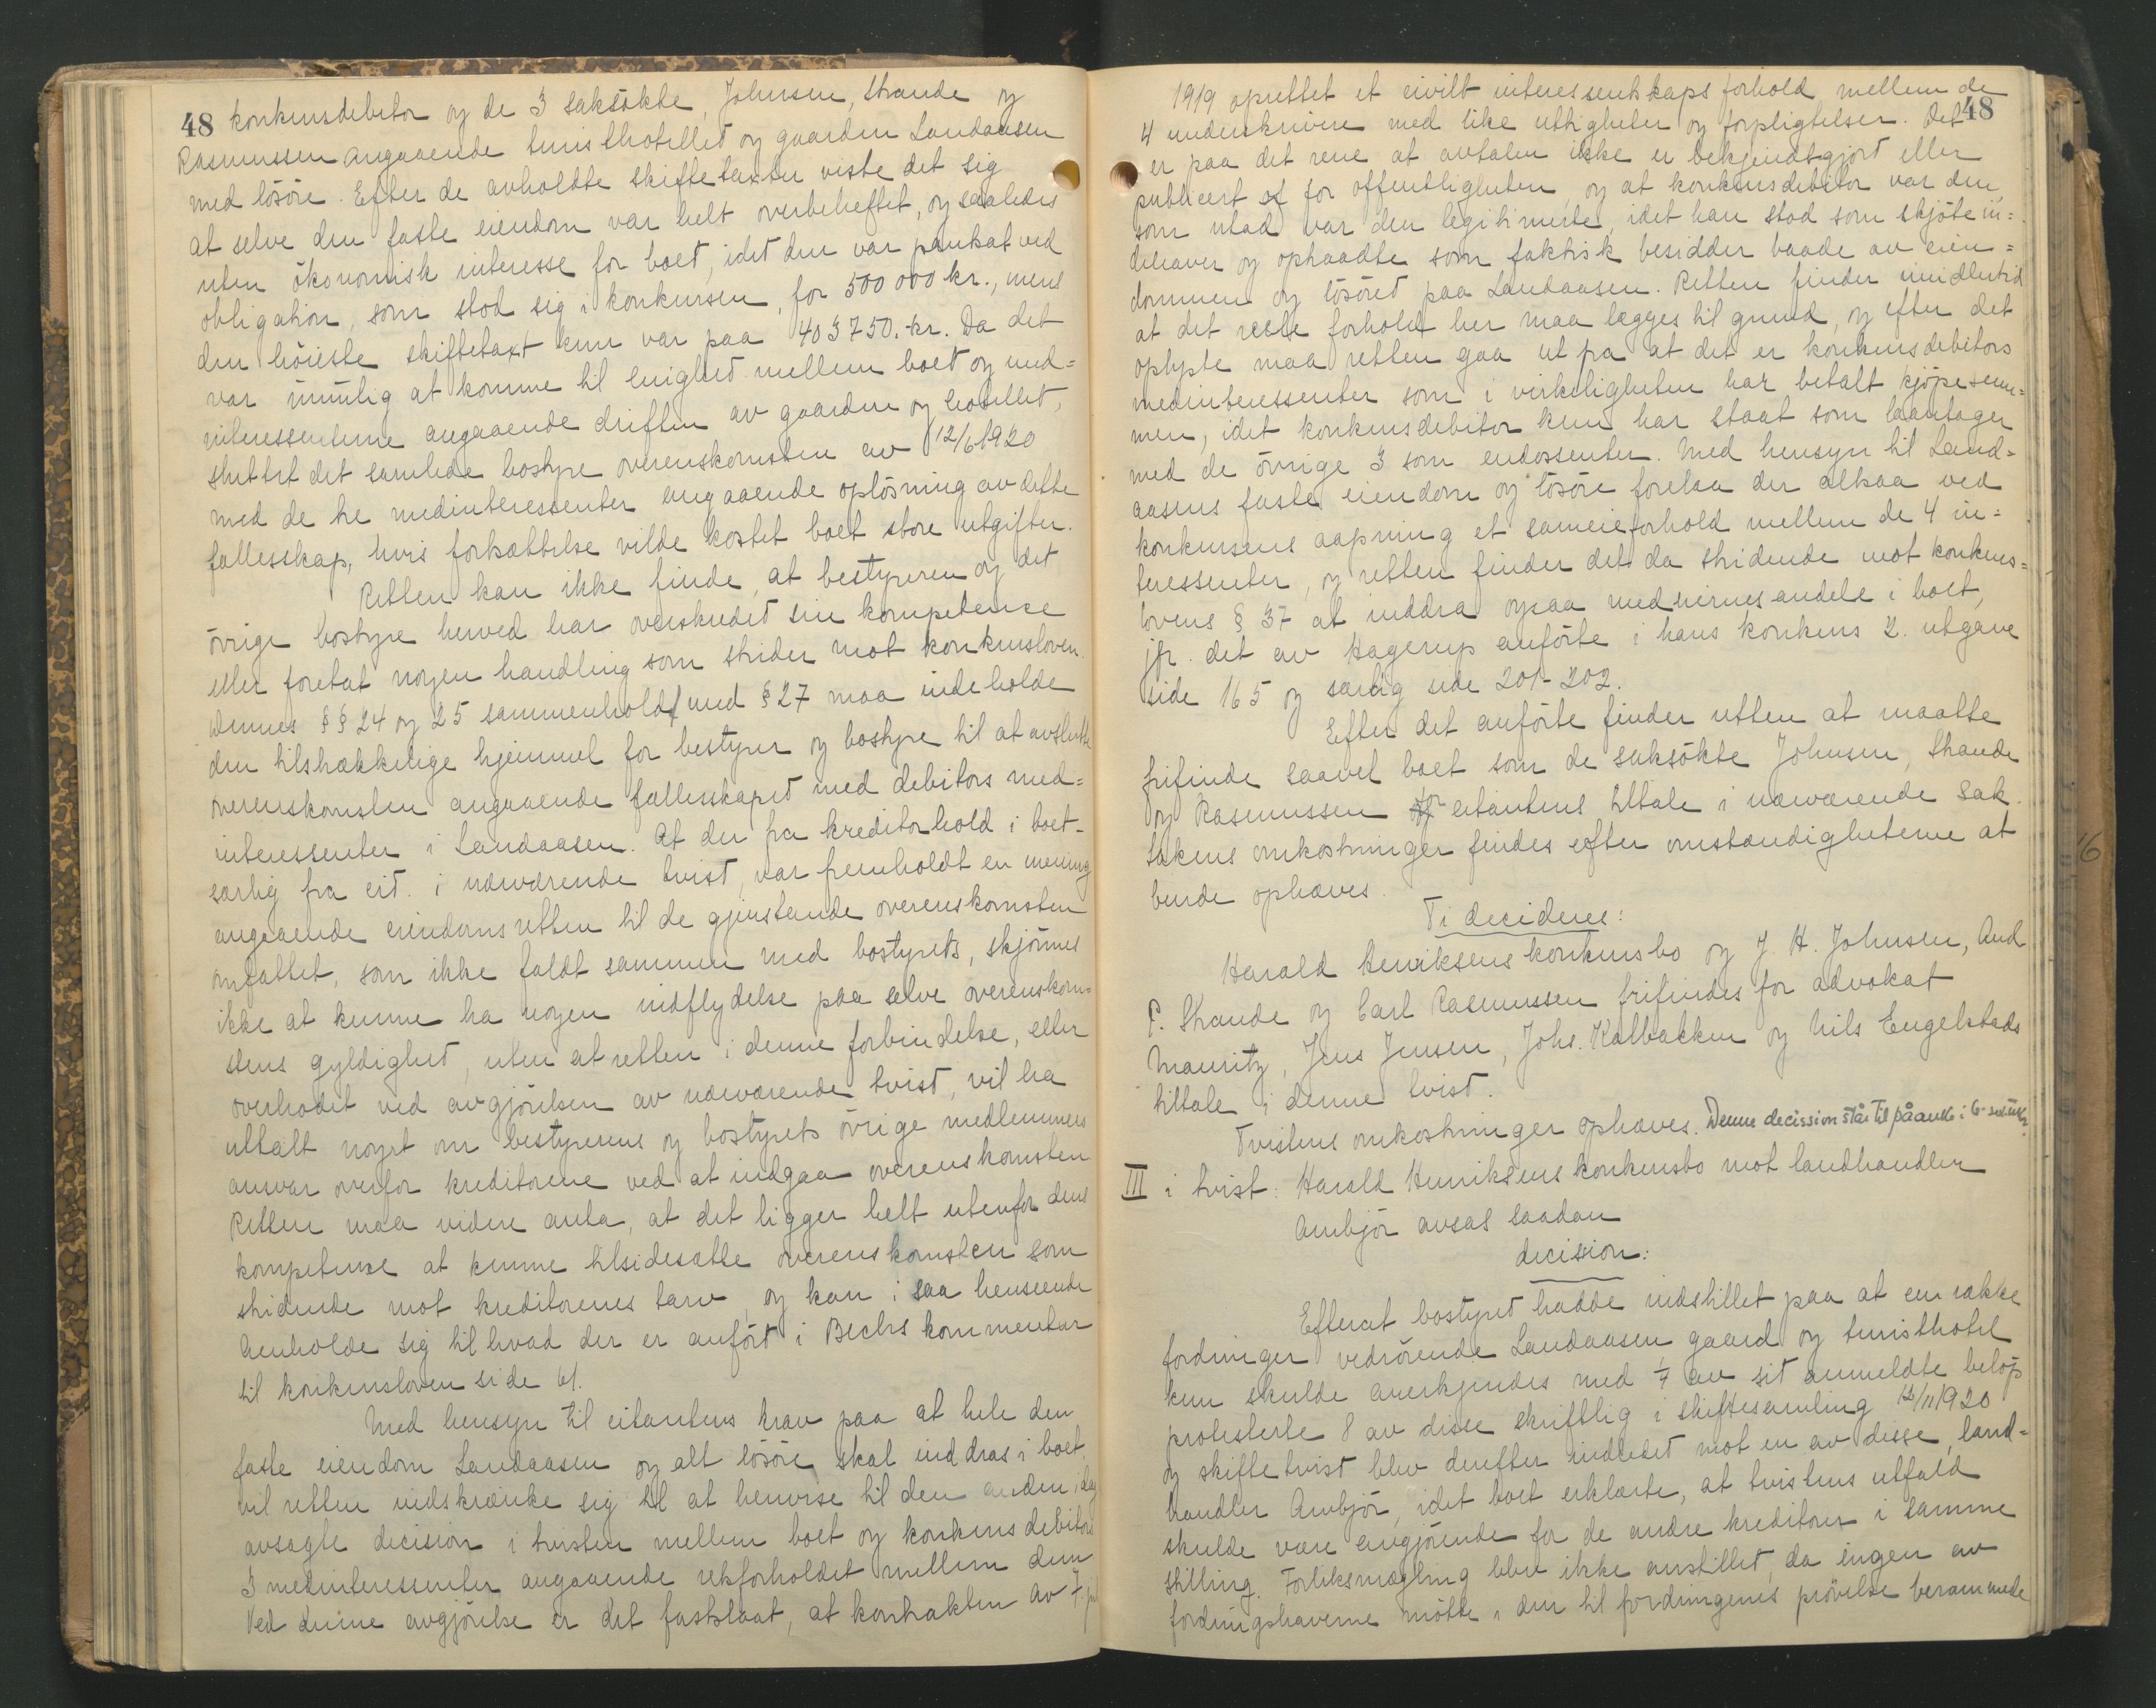 48 konkursdebitor og de 3 saksökte, Johnsen, Strande og
Rasmussen angaaende turisthotellet og gaarden Landaasen
med lösöre. Efter de avholdte skiftetaxter viste det sig
at selve den faste eiendom var helt overbeheftet, og saaledes
uten ökonomisk interesse for boet, idet den var pantsat ved
obligation, som stod sig i konkursen, for 500 000 kr., mens
den höieste skiftetaxt kun var paa 403750.-kr. Da det
var umulig at komme til enighet mellem boet og med=
interessenterne angaaende driften av gaarden og hotellet,
sluttet det samlede bostyre overenskomsten av 12/6 1920
med de tre medinteressenter angaaende oplösning av dette
fællesskap, hvis fortsættelse vilde kostet boet store utgifter.
Retten kan ikke finde, at bestyreren og det
övrige bostyre herved har overskredet sin kompetence
eller foretat nogen handling som strider mot konkursloven.
Dennes §§ 24 og 25 sammenholdt med § 27 maa indeholde
den tilstrækkelige hjemmel for bestyrer og bostyre til at avslutte
overenskomsten angaaende fællesskapet med debitors med=
interessenter i Landaasen. At der fra kreditorhold i boet-
særlig fra cit. i nærværende tvist, var fremholdt en mening
angaaende eiendomsretten til de gjenstande overenskomsten
omfattet, som ikke faldt sammen med bostyrets, skjönnes
ikke at kunne ha nogen indflydelse paa selve overenskom=
stens gyldighet, uten at retten i denne forbindelse, eller
overhodet ved avgjörelsen av nærværende tvist, vil ha
uttalt noget om bestyrerens og bostyrets övrige medlemmers
ansvar overfor kreditorene ved at indgaa overenskomsten
Retten maa videre anta, at det ligger helt utenfor dens
kompetense at kunne tilsidesætte overenskomsten som
stridende mot kreditorenes tarv, og kan i saa henseende
henholde sig til hvad der er anfört i Bechs kommentar
til konkursloven side 61.
Med hensyn til citantens krav paa at hele den
faste eiendom Landaasen og alt lösöre skal inddras i boet,
vil retten indskrænke sig til at henvise til den anden idag
avsagte decision i tvisten mellem boet og konkursdebitors
3 medinteressenter angaaende retsforholdet mellem dem
Ved denne avgjörelse er det fastslaat, at kontrakten av 7. juli
48
1919 oprettet et civilt interessentskapsforhold mellem de
4 underskrivere med like rettigheter og forpligtelser. Det
er paa det rene at avtalen ikke er bekjendtgjort eller
publicert for offentligheten, og at konkursdebitor var den
som utad var den legitimerte, idet han stod som skjöte in=
dehaver og ophaadte som faktisk besidder baade av eien=
dommen og lösöret paa Landaasen. Retten finder imidlertid
at det reele forhold her maa lægges til grund, og efter det
oplyste maa retten gaa ut fra at det er konkursdebitors
medinteressenter som i virkeligheten har betalt kjöpesum=
men, idet konkursdebitor kun har staat som laantager
med de övrige 3 som endossenter. Med hensyn til Land=
aasens faste eiendom og lösöre forelaa der altsaa ved
konkursens aapning et sameieforhold mellem de 4 in=
teressenter, og retten finder det da stridende mot konkurs=
lovens § 37 at inddra ogsaa medeiernes andele i boet,
jfr. det av Hagerup anförte i hans konkurs 2. utgave
side 165 og særlig side 201-202.
Efter det anförte finder retten at maatte
frifinde saavel boet som de saksökte Johnsen, Strande
og Rasmussen for citantens tiltale i nærværende sak.
Sakens omkostninger findes efter omstændigheterne at
burde ophæves.
Ti decideres:
Harald Henriksens konkursbo og J. H. Johnsen, And
P. Strande og Carl Rasmussen frifindes for advokat
Mauritz, Jens Jensen, Johs. Kalbakken og Nils Engelstads
tiltale i denne tvist.
Tvistens omkostninger ophæves. Denne decission står til påanke i
III i tvist: Harald Henriksens konkursbo mot landhandler
Ambjör avsas saadan
decision:
Efterat bostyret hadde indstillet paa at en række
fordringer vedrörende Landaasen gaard og turisthotel
kun skulde anerkjendes med 1/4 av sit anmeldte belöp
protesterte 8 av disse skriftlig i skiftesamling 12/11 1920
og skiftetvist blev derefter indledet mot en av disse, land=
handler Ambjör, idet boet erklærte, at tvistens utfald
skulde være avgjörende for de andre kreditorer i samme
stilling. Forliksmægling blev ikke anstillet, da ingen av
fordringshaverne mötte i den til fordringenes prövelse berammede
16